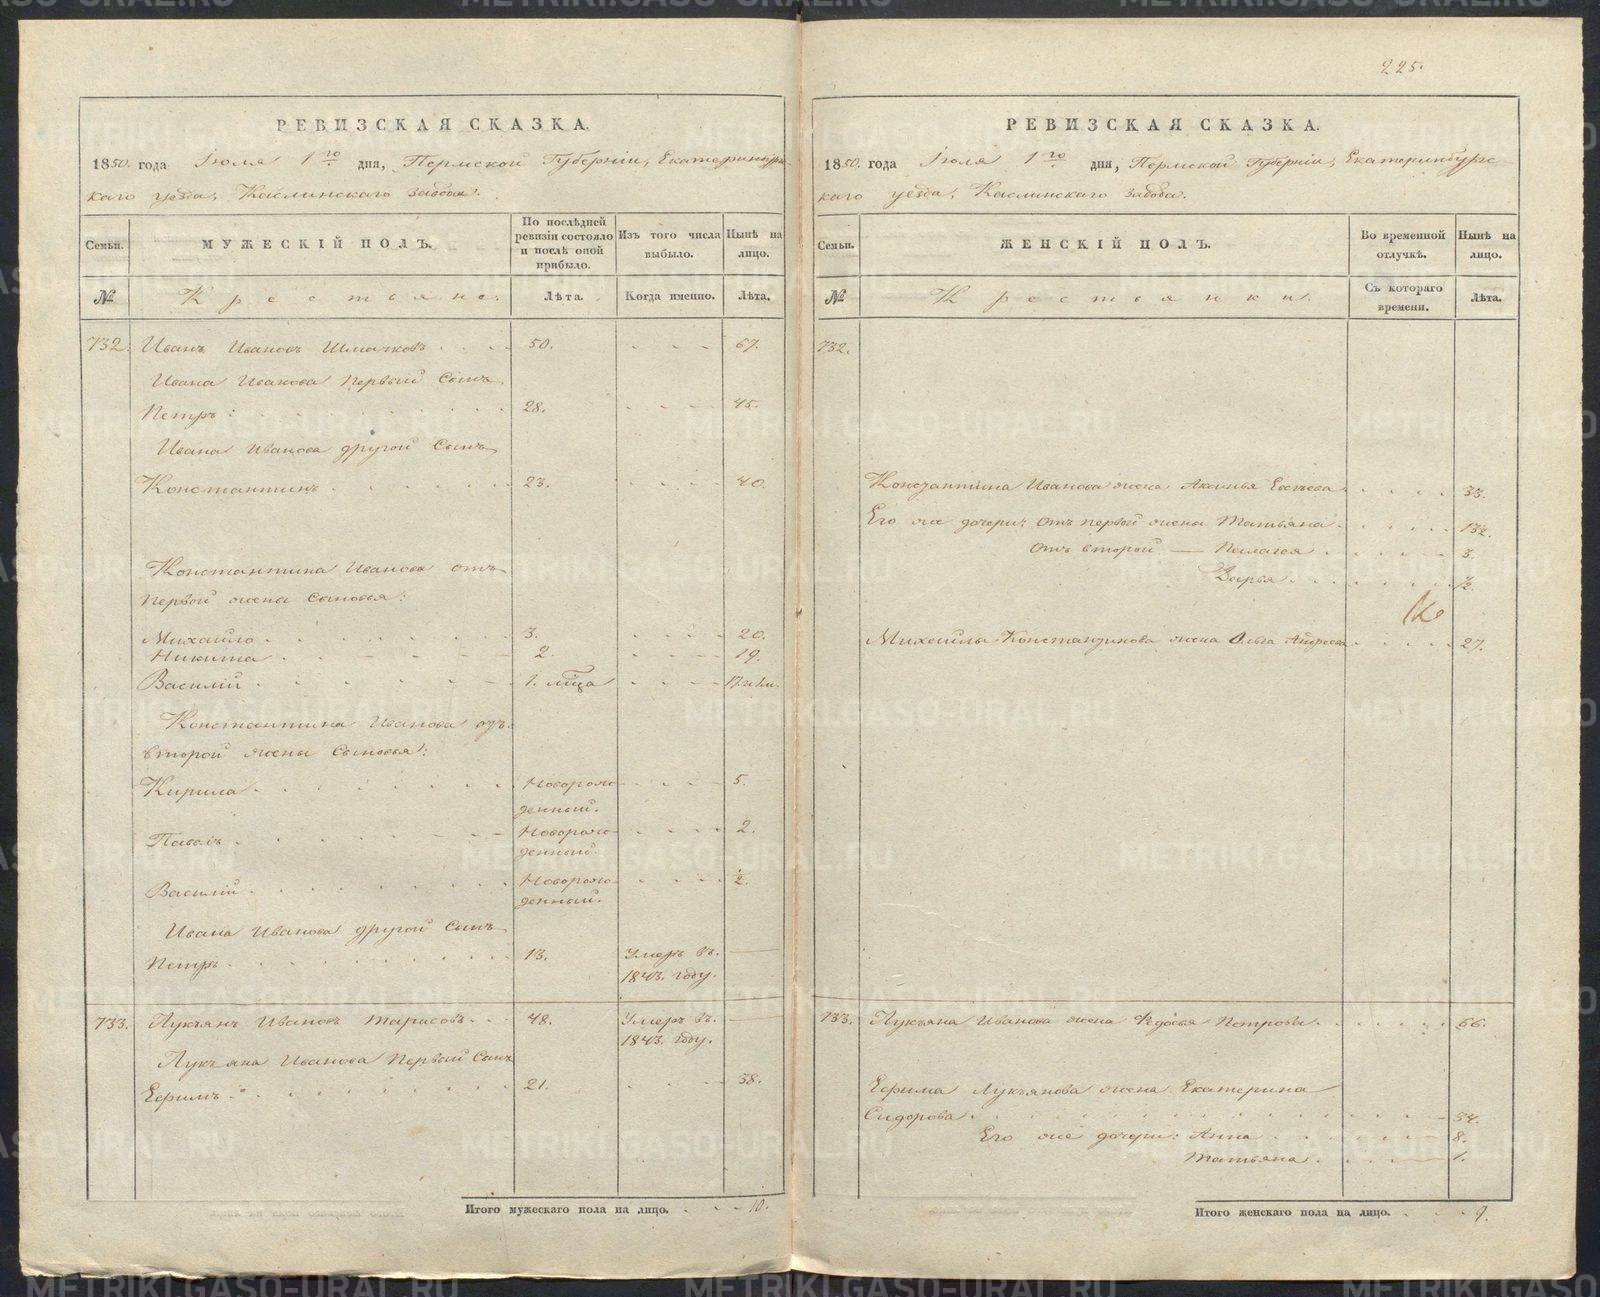 225.
РЕВИЗСКАЯ СКАЗКА.
1850. года Іюля 1го дня, Пермской Губерніи, Екатеринбургс-
каго уезда, Каслинскаго завода.
Семьи.
МУЖЕСКІЙ ПОЛЪ.
По послѣдней ревизіи состояло и послѣ оной прибыло.
Изъ того числа выбыло.
Нынѣ на лицо.
№
Крестьяне.
Лѣта.
Когда именно.
Лѣта.
732. Иванъ Ивановъ Шмачковъ 50. 67.
Ивана Иванова первый сынъ
Петръ 28. 45.
Ивана Иванова другой сынъ
Константинъ 23. 40.
Константина Иванова отъ
первой жены сыновья:
Михайло 3. 20.
Никита 2. 19.
Василій 1. мца 17. и 1 м.
Константина Иванова отъ
второй жены сыновья:
Кирила Новорож- 5.
денный.
Павелъ Новорож- 2.
денный.
Василій Новорож- ½.
денный.
Ивана Иванова другой сынъ
Петръ 13. Умеръ въ
1843. году.
733. Лукьянъ Ивановъ Тарасовъ 48. Умеръ въ
1843. году.
Лукьяна Иванова первый сынъ
Ефимъ 21. 38.
Итого мужескаго пола на лицо. 10.
РЕВИЗСКАЯ СКАЗКА.
1850. года Іюля 1го дня, Пермской Губерніи, Екатеринбургс-
каго уезда, Каслинскаго завода.
Семьи.
ЖЕНСКІЙ ПОЛЪ.
Во временной отлучкѣ.
Нынѣ на лицо.
№
Крестьянки.
Съ котораго времени.
Лѣта.
732.
Константина Иванова жена Аксинья Евсѣева 33.
Его же дочери: отъ первой жены Татьяна 13½.
отъ второй — Пелагея 3.
Дарья ½.
Михайлы Константинова жена Ольга Андреева 27.
733. Лукьяна Иванова жена Федосья Петрова 66.
Ефима Лукьянова жена Екатерина
Сидорова 34.
Его же дочери: Анна 8.
Татьяна 1.
Итого женскаго пола на лицо. 9.
METRIKI.GASO-URAL.RU